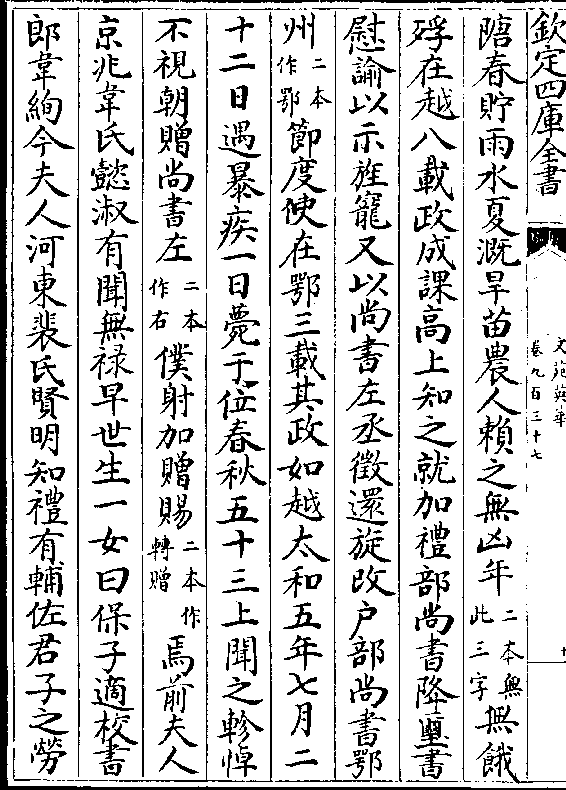 欽定四庫全書
文苑英華
卷九百三十七
陂春貯雨水夏溉旱苗農人賴之無凶年二本無此三字無餓
殍在越八載政成課高上知之就加禮部尚書降璽書
慰諭以示旌寵又以尚書左丞徵還旋改户部尚書鄂
州二本作鄂節度使在鄂三載其政如越太和五年七月二
十二日遇暴疾一日薨于位春秋五十三上聞之軫悼
不視朝贈尚書左二本作右僕射加贈賜二本作轉贈焉前夫人
京兆韋氏懿淑有聞無禄早世生一女曰保子適校書
郎韋絢今夫人河東裴氏賢明知禮有輔佐君子之勞